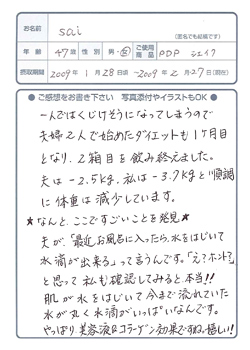 お名前 sai
(匿名でも結構です)
年齢 47歳 性別 男・女 ご使用商品 PDP シェイク
摂取期間 2009年 1月 28日頃 ~2009年 2月 27日(現在)
●ご感想をお書き下さい 写真添付やイラストもOK●
一人ではくじけそうになってしまうので
夫婦2人で始めたダイエットも1ヶ月目
となり、2箱目を飲み終えました。
夫は-2.5kg、私は-3.7kgと順調
に体重は減少しています。
★なんと、ここですごいことを発見★
夫が、「最近お風呂に入ったら、水をはじいて
水滴が出来る」って言うんです。「え?ホント?」
と思って私も確認してみると、本当!!
肌が水をはじいて今まで流れていた
水が丸く水滴がいっぱいなんです。
やっぱり美容液&コラーゲン効果ですね。嬉しい!!